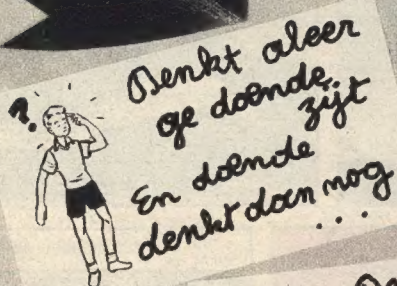 ?
Denkt aleer
ge doende
zijt
En doende
denkt dan nog
...